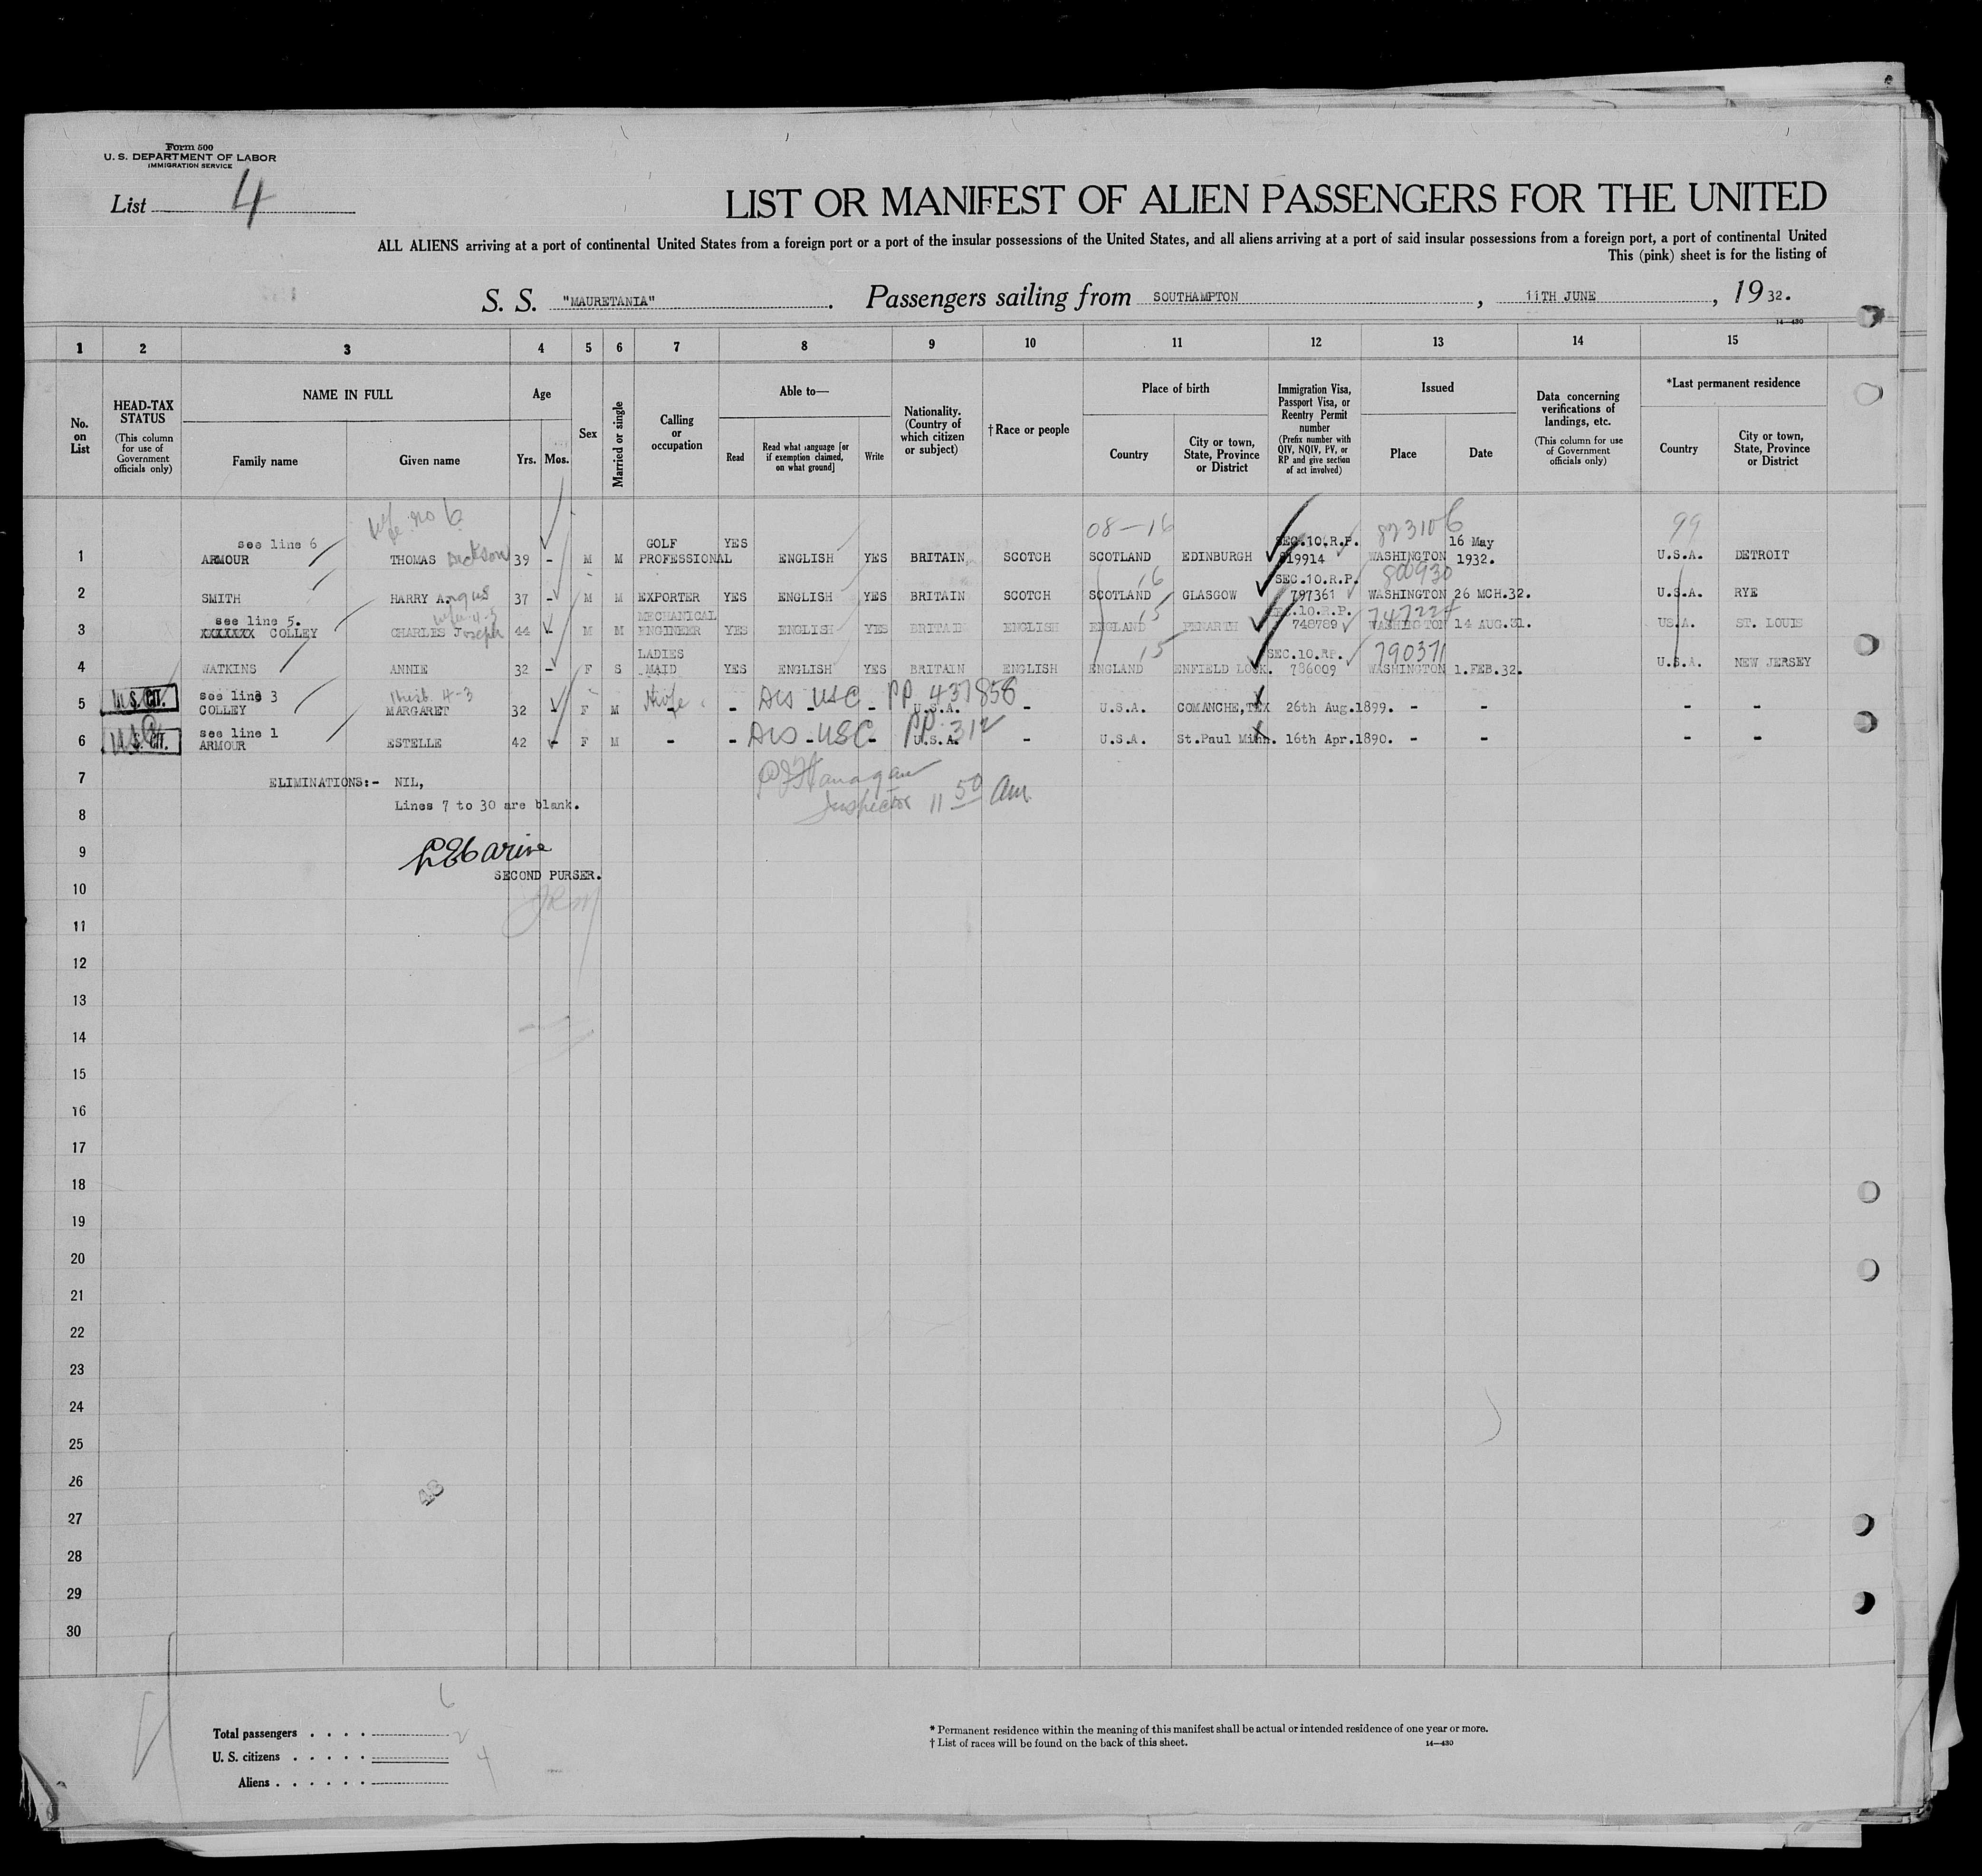 Form 500
U. S. DEPARTMENT OF LABOR
IMMIGRATION SERVICE
List 4
LIST OR MANIFEST OF ALIEN PASSENGERS FOR THE UNITED
ALL ALIENS arriving at a port of continental United States from a foreign port or a port of the insular possessions of the United States, and all aliens arriving at a port of said insular possessions from a foreign port, a port of continental United
This (pink) sheet is for the listing of
S. S. "MAURETANIA". Passengers sailing from SOUTHAMPTON, 11TH JUNE, 1932.
14—430
1 2 3 4 5 6 7 8 9 10 11 12 13 14 15
No. on List
HEAD-TAX STATUS
(This column for use of Government officials only)
NAME IN FULL
Family name
Given name
Age
Yrs. Mos.
Sex
Married or single
Calling or occupation
Able to—
Read
Read what language [or if exemption claimed, on what ground]
Write
Nationality. (Country of which citizen or subject)
†Race or people
Place of birth
Country
City or town, State, Province or District
Immigration Visa, Passport Visa, or Reentry Permit number
(Prefix number with QIV, NQIV, PV, or RP and give section of act involved)
Issued
Place
Date
Data concerning verifications of landings, etc.
(This column for use of Government officials only)
*Last permanent residence
Country
City or town, State, Province or District
wife no 6 08-16 823106 99
see line 6 GOLF YES SEC.10.R.P. 16 May
1 ARMOUR THOMAS Dickson 39 - M M PROFESSIONAL ENGLISH YES BRITAIN SCOTCH SCOTLAND EDINBURGH 819914 WASHINGTON 1932. U.S.A. DETROIT
16 SEC.10.R.P. 800930
2 SMITH HARRY Angus 37 - M M EXPORTER YES ENGLISH YES BRITAIN SCOTCH SCOTLAND GLASGOW 797361 WASHINGTON 26 MCH.32. U.S.A. RYE
see line 5. wife 4-5 MECHANICAL 15 SEC.10.R.P. 747224
3 XXXXXXX COLLEY CHARLES Joseph 44 - M M ENGINEER YES ENGLISH YES BRITAIN ENGLISH ENGLAND PENARTH 748789 WASHINGTON 14 AUG.31. USA. ST. LOUIS
LADIES 15 SEC.10.RP. 790371
4 WATKINS ANNIE 32 - F S MAID YES ENGLISH YES BRITAIN ENGLISH ENGLAND ENFIELD LOCK. 786009 WASHINGTON 1.FEB.32. U.S.A. NEW JERSEY
U.S. CIT. see line 3 Husb. 4-3 Wife USC PP 437856
5 COLLEY MARGARET 32 - F M - - - - U.S.A. - U.S.A. COMANCHE,TEX 26th Aug.1899. - - - -
U.S. CIT. see line 1 USC PP 312
6 ARMOUR ESTELLE 42 - F M - - - - U.S.A. - U.S.A. St.Paul Minn. 16th Apr.1890. - - - -
7 ELIMINATIONS:- NIL,
Lines 7 to 30 are blank.
Inspector 11 50 am
8
9
SECOND PURSER.
10
11
12
13
14
15
16
17
18
19
20
21
22
23
24
25
26
48
27
28
29
30
6
Total passengers . . . .
2
U. S. citizens . . . . .
4
Aliens . . . . . .
* Permanent residence within the meaning of this manifest shall be actual or intended residence of one year or more.
† List of races will be found on the back of this sheet. 14—430